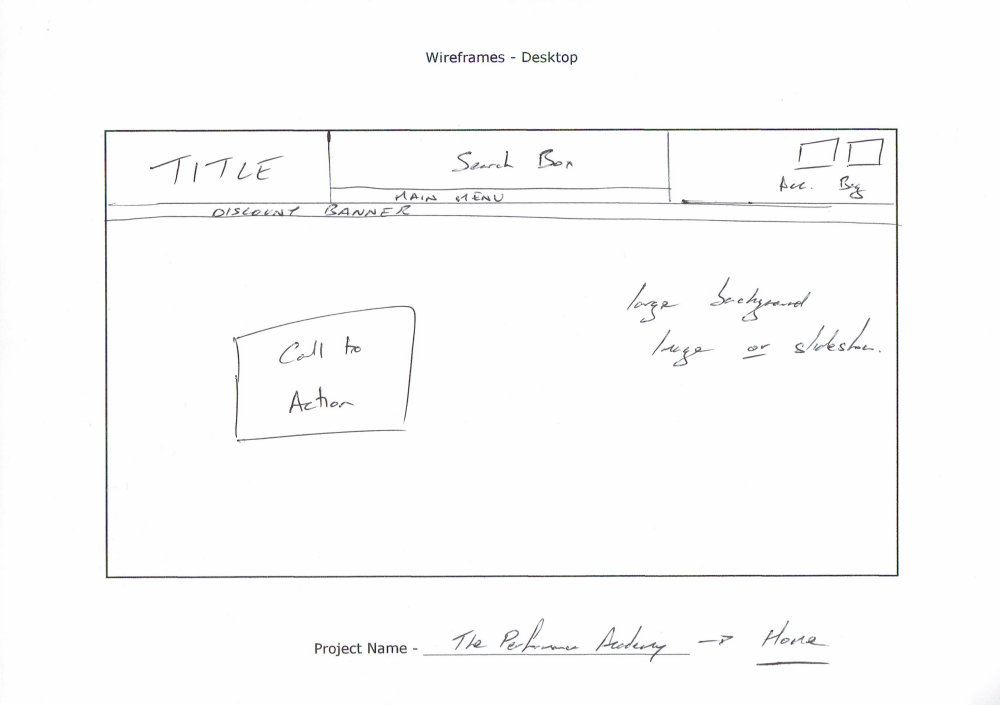 Wireframes - Desktop
TITLE
Search Box
Acc. Bag
MAIN MENU
DISCOUNT BANNER
large background
Image or slideshow.
Call to
Action
Project Name - The Performance Academy → Home